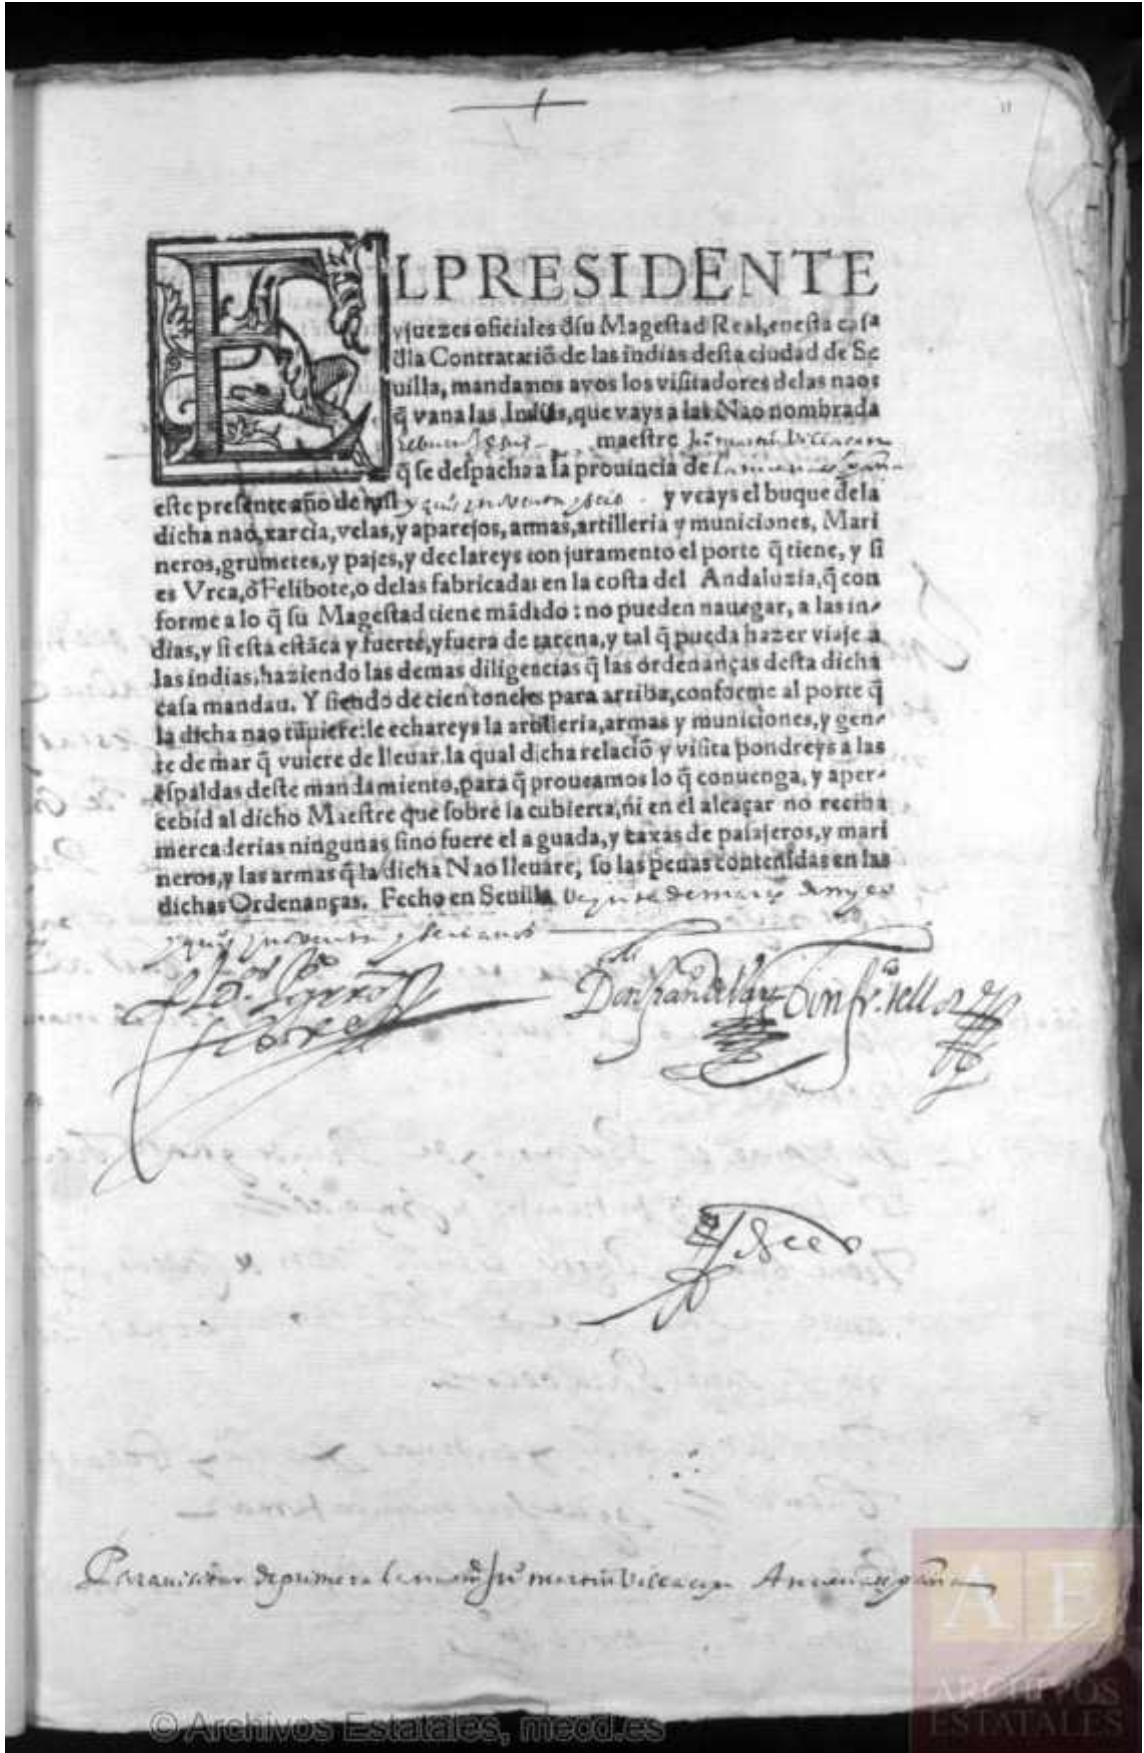 EL PRESIDENTE
y juezes oficiales dsu Magestad Real, en esta casa
dla Contratació de las indias desta ciudad de Se
uilla, mandamos a vos los visitadores de las naos
q̃ van a las Indias, que vays a la Nao nombrada
maestre Ju° martin Villacan
q̃ se despacha a la prouincia de la nueua españa
este presente año de mil y quis y nouenta y seis y veays el buque de la
dicha nao, xarcia, velas, y aparejos, armas, artilleria y municiones, Mari
neros, grumetes, y pajes, y declareys con juramento el porte q̃ tiene, y si
es Vrca, ò Felibote, o delas fabricadas en la costa del Andaluzia, q̃ con
forme a lo q̃ su Magestad tiene mãdado: no pueden nauegar, a las in-
dias, y si esta estãca y fuerte, y fuera de carena, y tal q̃ pueda hazer viaje a
las indias, haziendo las demas diligencias q̃ las ordenanças desta dicha
casa mandan. Y siendo de cien toneles para arriba, conforme al porte q̃
la dicha nao tuuiere: le echareys la artilleria, armas y municiones, y gen-
te de mar q̃ vuiere de lleuar. la qual dicha relaciõ y visita pondreys a las
espaldas deste mandamiento, para q̃ proueamos lo q̃ conuenga, y aper-
cebid al dicho Maestre que sobre la cubierta, ni en el alcaçar no reciba
mercaderias ningunas sino fuere el aguada, y caxas de pasajeros, y mari
neros, y las armas q̃ la dicha Nao lleuare, so las penas contenidas en las
dichas Ordenanças. Fecho en Seuilla de março de mill
y quis y nouenta y seis años
Don fran Don fr.co tello
Para visitar de primera la nao Ju° martin Villacan A nueua españa
A E
ARCHIVOS
ESTATALES
© Archivos Estatales, mecd.es